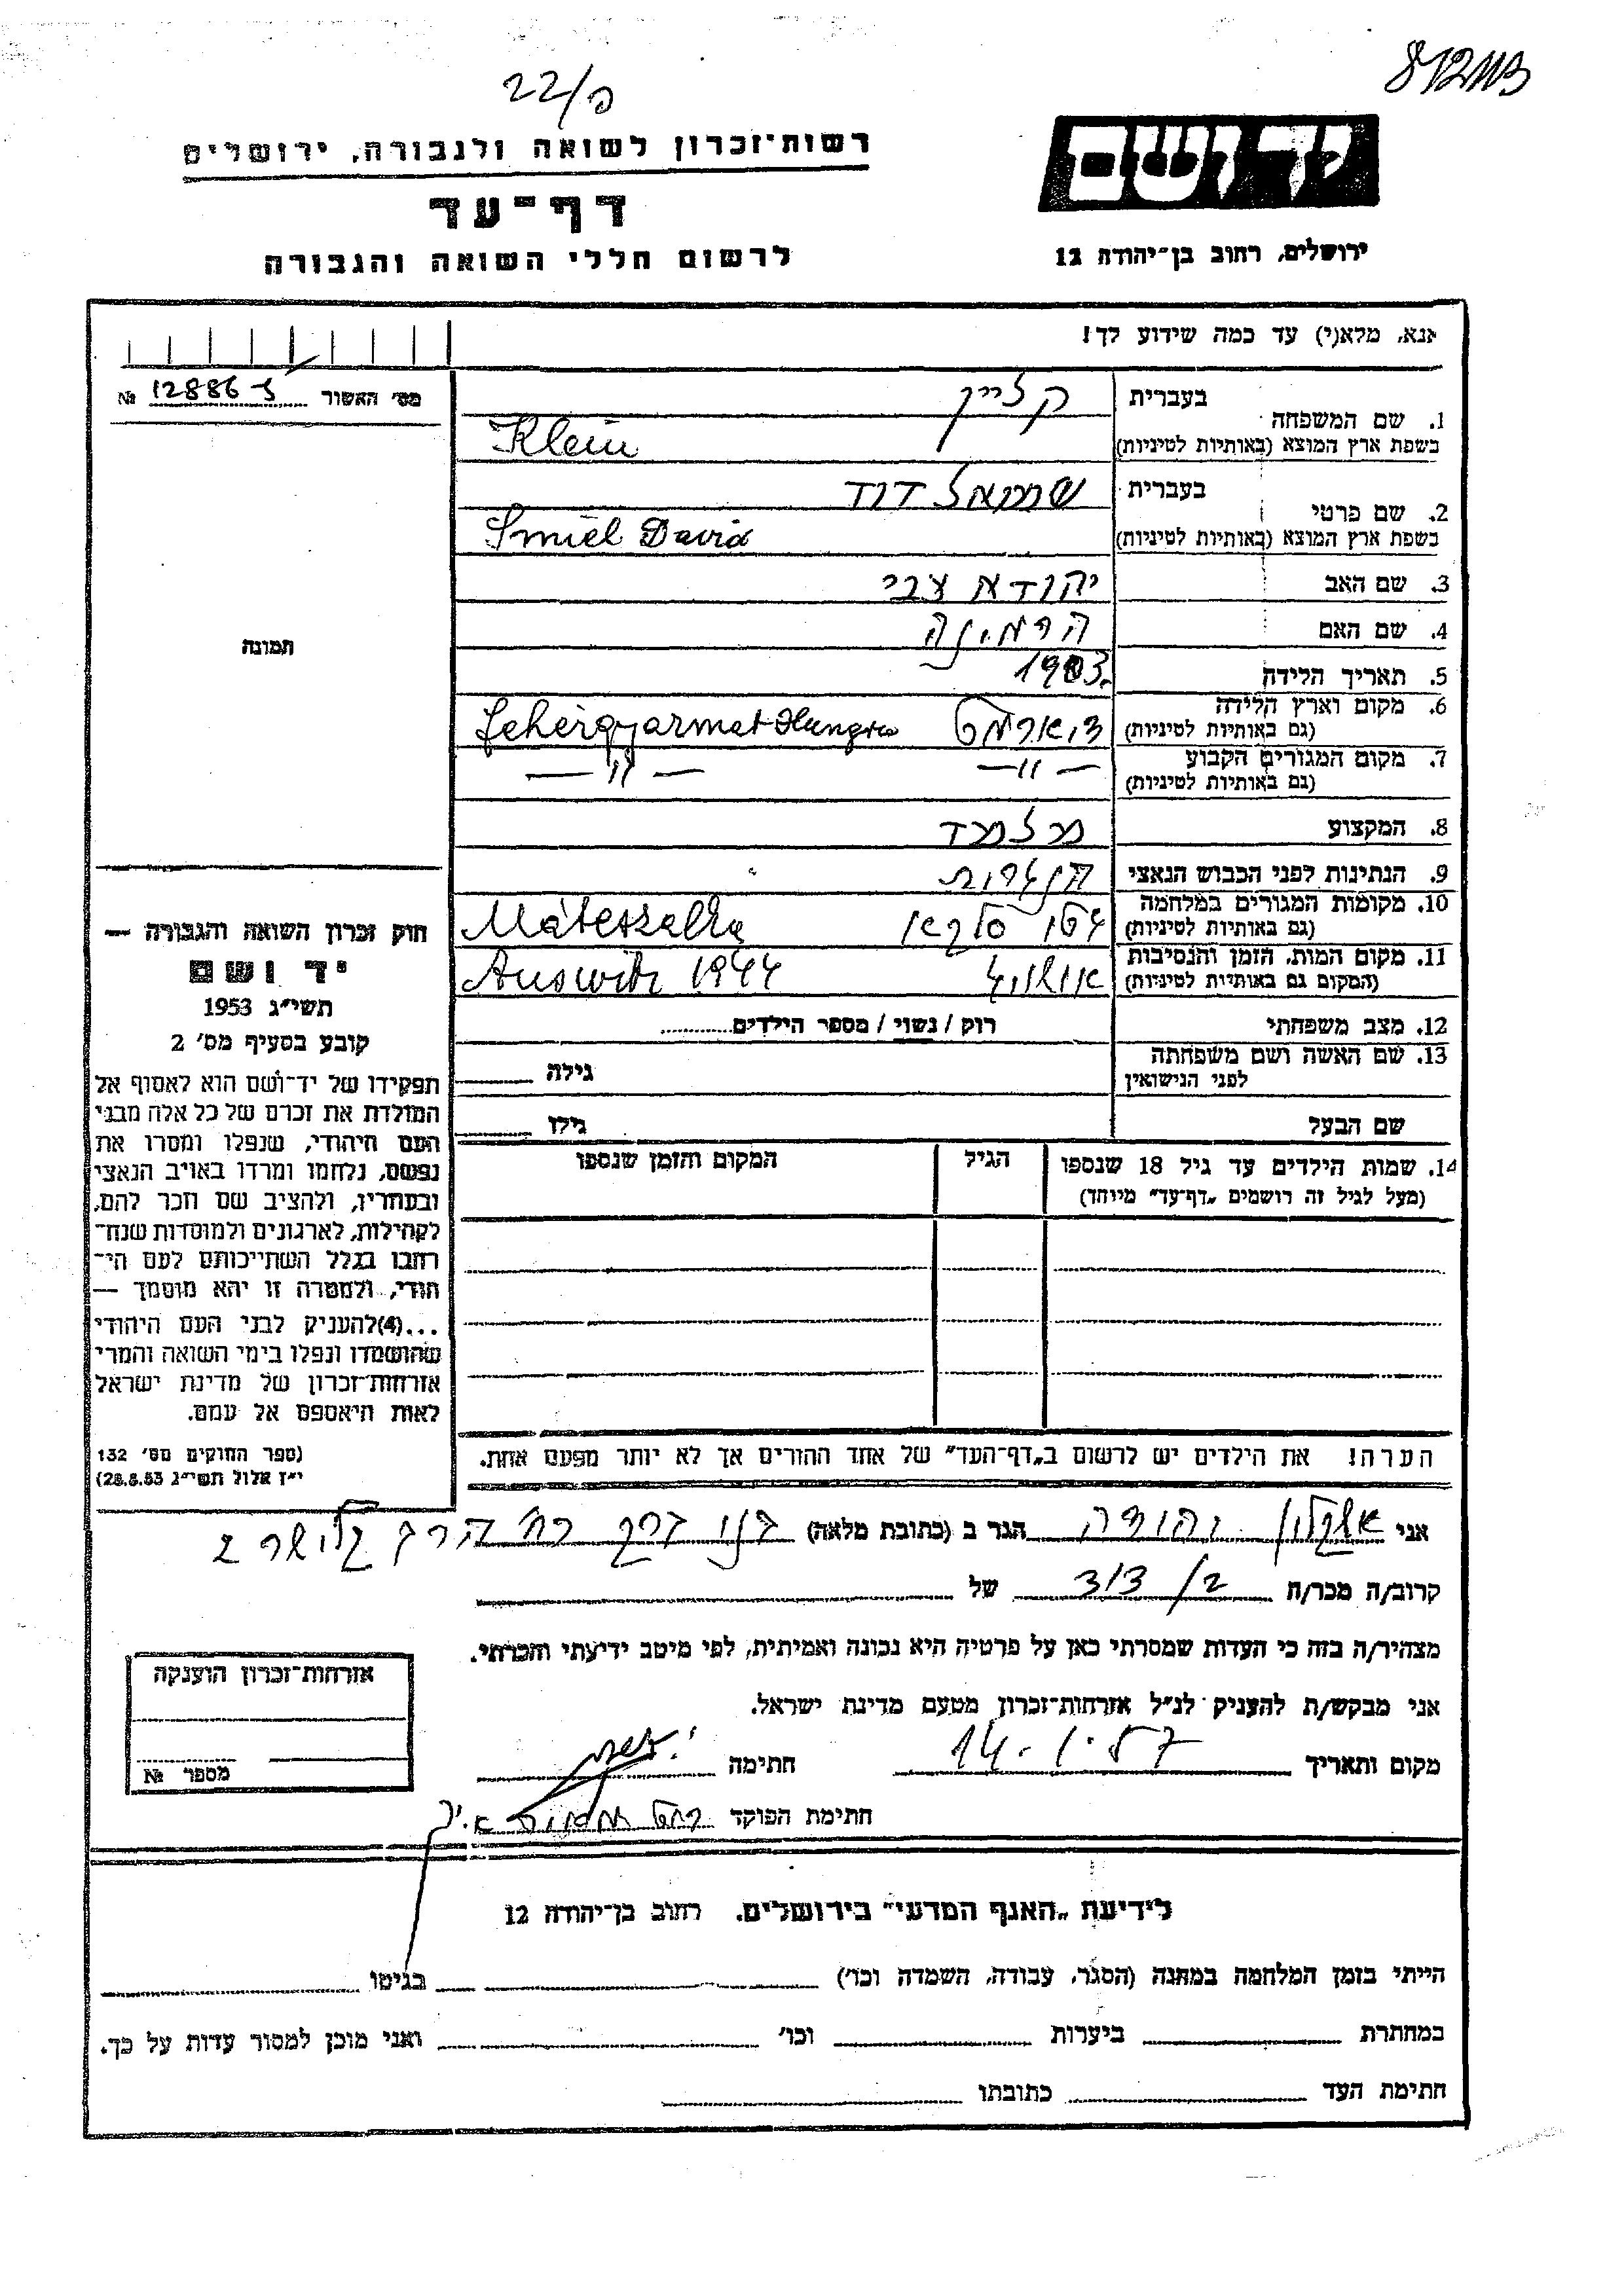 22/פ
רשות־זכרון לשואה ולגבורה, ירושלים
דף־עד
לרשום חללי השואה והגבורה
יד ושם
ירושלים, רחוב בן־יהודה 12
אנא, מלא(י) עד כמה שידוע לך!
מס' האשור № 12886
1. שם המשפחה
בעברית קליין
בשפת ארץ המוצא (באותיות לטיניות) Klein
2. שם פרטי
בעברית שמואל דוד
בשפת ארץ המוצא (באותיות לטיניות) Smiel David
3. שם האב יהודא צבי
4. שם האם הרמינה
5. תאריך הלידה 1903.
6. מקום וארץ הלידה
(גם באותיות לטיניות) Fehérgyarmat Hungria
7. מקום המגורים הקבוע — " — — " —
(גם באותיות לטיניות)
8. המקצוע מלמד
9. הנתינות לפני הכבוש הנאצי הונגרית
10. מקומות המגורים במלחמה
(גם באותיות לטיניות) Máteszalka
11. מקום המות, הזמן והנסיבות
(המקום גם באותיות לטיניות) Auswitz 1944
12. מצב משפחתי רוק / נשוי / מספר הילדים
13. שם האשה ושם משפחתה
לפני הנישואין גילה
שם הבעל גילו
14. שמות הילדים עד גיל 18 שנספו הגיל המקום והזמן שנספו
(מעל לגיל זה רושמים „דף־עד" מיוחד)
הערה! את הילדים יש לרשום ב„דף־העד" של אחד ההורים אך לא יותר מפעם אחת.
תמונה
חוק זכרון השואה והגבורה —
יד ושם
תשי"ג 1953
קובע בסעיף מס' 2
תפקידו של יד־ושם הוא לאסוף אל
המולדת את זכרם של כל אלה מבני
העם היהודי, שנפלו ומסרו את
נפשם, נלחמו ומרדו באויב הנאצי
ובעוזריו, ולהציב שם וזכר להם,
לקהילות, לארגונים ולמוסדות שנח־
רבו בגלל השתייכותם לעם הי־
הודי, ולמטרה זו יהא מוסמך —
...(4)להעניק לבני העם היהודי
שהושמדו ונפלו בימי השואה והמרי
אזרחות־זכרון של מדינת ישראל
לאות היאספם אל עמם.
(ספר החוקים מס' 132
י"ז אלול תשי"ג 28.8.53)
אני אשקלון יהודה הגר ב (כתובת מלאה)
קרוב/ה מכר/ה של
מצהיר/ה בזה כי העדות שמסרתי כאן על פרטיה היא נכונה ואמיתית, לפי מיטב ידיעתי והכרתי.
אני מבקש/ת להעניק לנ"ל אזרחות־זכרון מטעם מדינת ישראל.
מקום ותאריך 14.1.57 חתימה
חתימת הפוקד
אזרחות־זכרון הוענקה
מספר №
לידיעת „האגף המדעי" בירושלים. רחוב בן־יהודה 12
הייתי בזמן המלחמה במחנה (הסגר, עבודה, השמדה וכו') בגיטו
במחתרת ביערות וכו' ואני מוכן למסור עדות על כך.
חתימת העד כתובתו